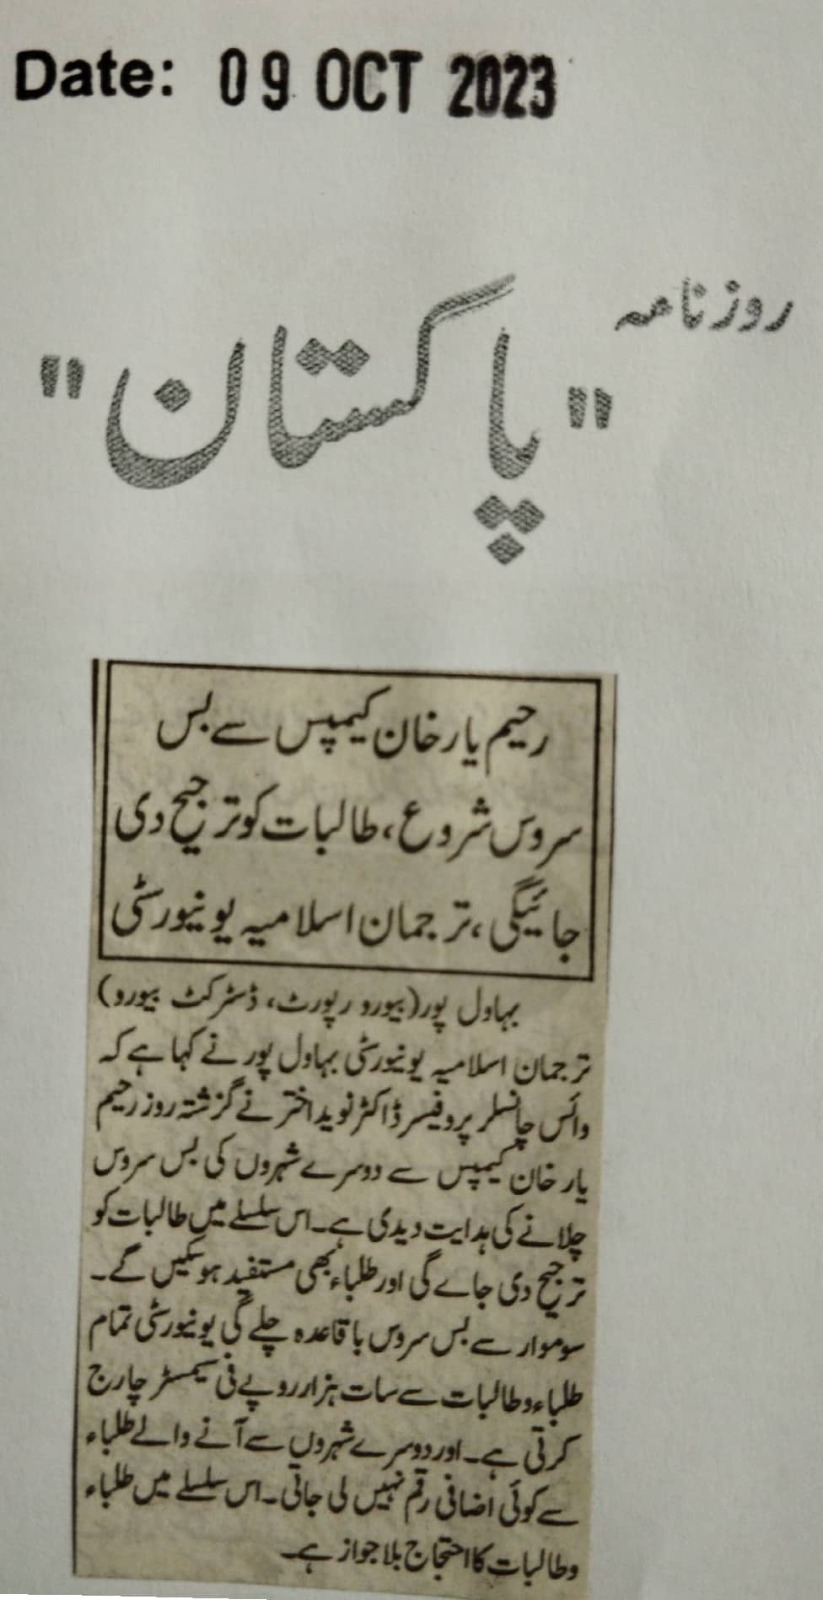 Date: 09 OCT 2023
روزنامہ
"پاکستان"
رحیم یار خان کیمپس سے بس
سروس شروع، طالبات کو ترجیح دی
جائیگی، ترجمان اسلامیہ یونیورسٹی
بہاول پور (بیورو رپورٹ، ڈسٹرکٹ بیورو)
ترجمان اسلامیہ یونیورسٹی بہاول پور نے کہا ہے کہ
وائس چانسلر پروفیسر ڈاکٹر نوید اختر نے گزشتہ روز رحیم
یار خان کیمپس سے دوسرے شہروں کی بس سروس
چلانے کی ہدایت دیدی ہے۔ اس سلسلے میں طالبات کو
ترجیح دی جاے گی اور طلباء بھی مستفید ہوسکیں گے۔
سوموار سے بس سروس باقاعدہ چلے گی یونیورسٹی تمام
طلباء و طالبات سے سات ہزار روپے فی سمیسٹر چارج
کرتی ہے۔ اور دوسرے شہروں سے آنے والے طلباء
سے کوئی اضافی رقم نہیں لی جاتی۔ اس سلسلے میں طلباء
و طالبات کا احتجاج بلا جواز ہے۔